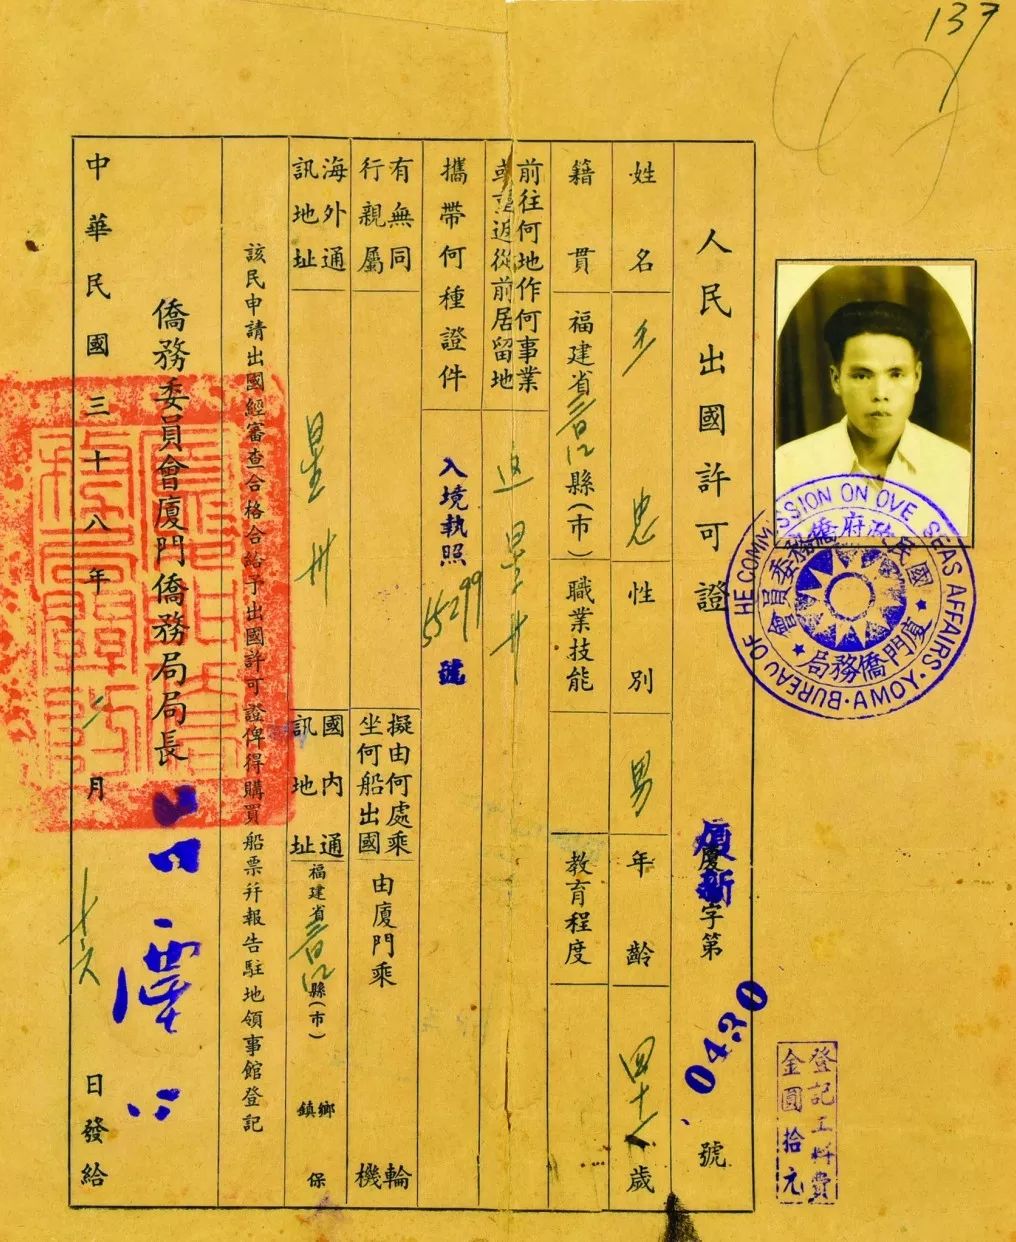 137
人民出國許可證
廈新
廈字第
0430
號
姓名
忠
性別
男
年齡
四十
歲
籍貫
福建省晉江縣(市)
職業技能
教育程度
前往何地作何事業
或重返從前居留地
返星州
攜帶何種證件
入境執照
55299
號
有無同
行親屬
擬由何處乘
坐何船出國
由廈門乘
輪
機
海外通
訊地址
星州
國內通
訊地址
福建省晉江縣(市)
鄉
鎮
保
該民申請出國經審查合格合給予出國許可證俾得購買船票幷報告駐地領事館登記
僑務委員會廈門僑務局局長
中華民國三十八年
月
十六
日發給
BUREAU OF THE COMMISSION ON OVERSEAS AFFAIRS·AMOY·
國民政府僑務委員會
廈門僑務局
登記工料費
金圓拾元